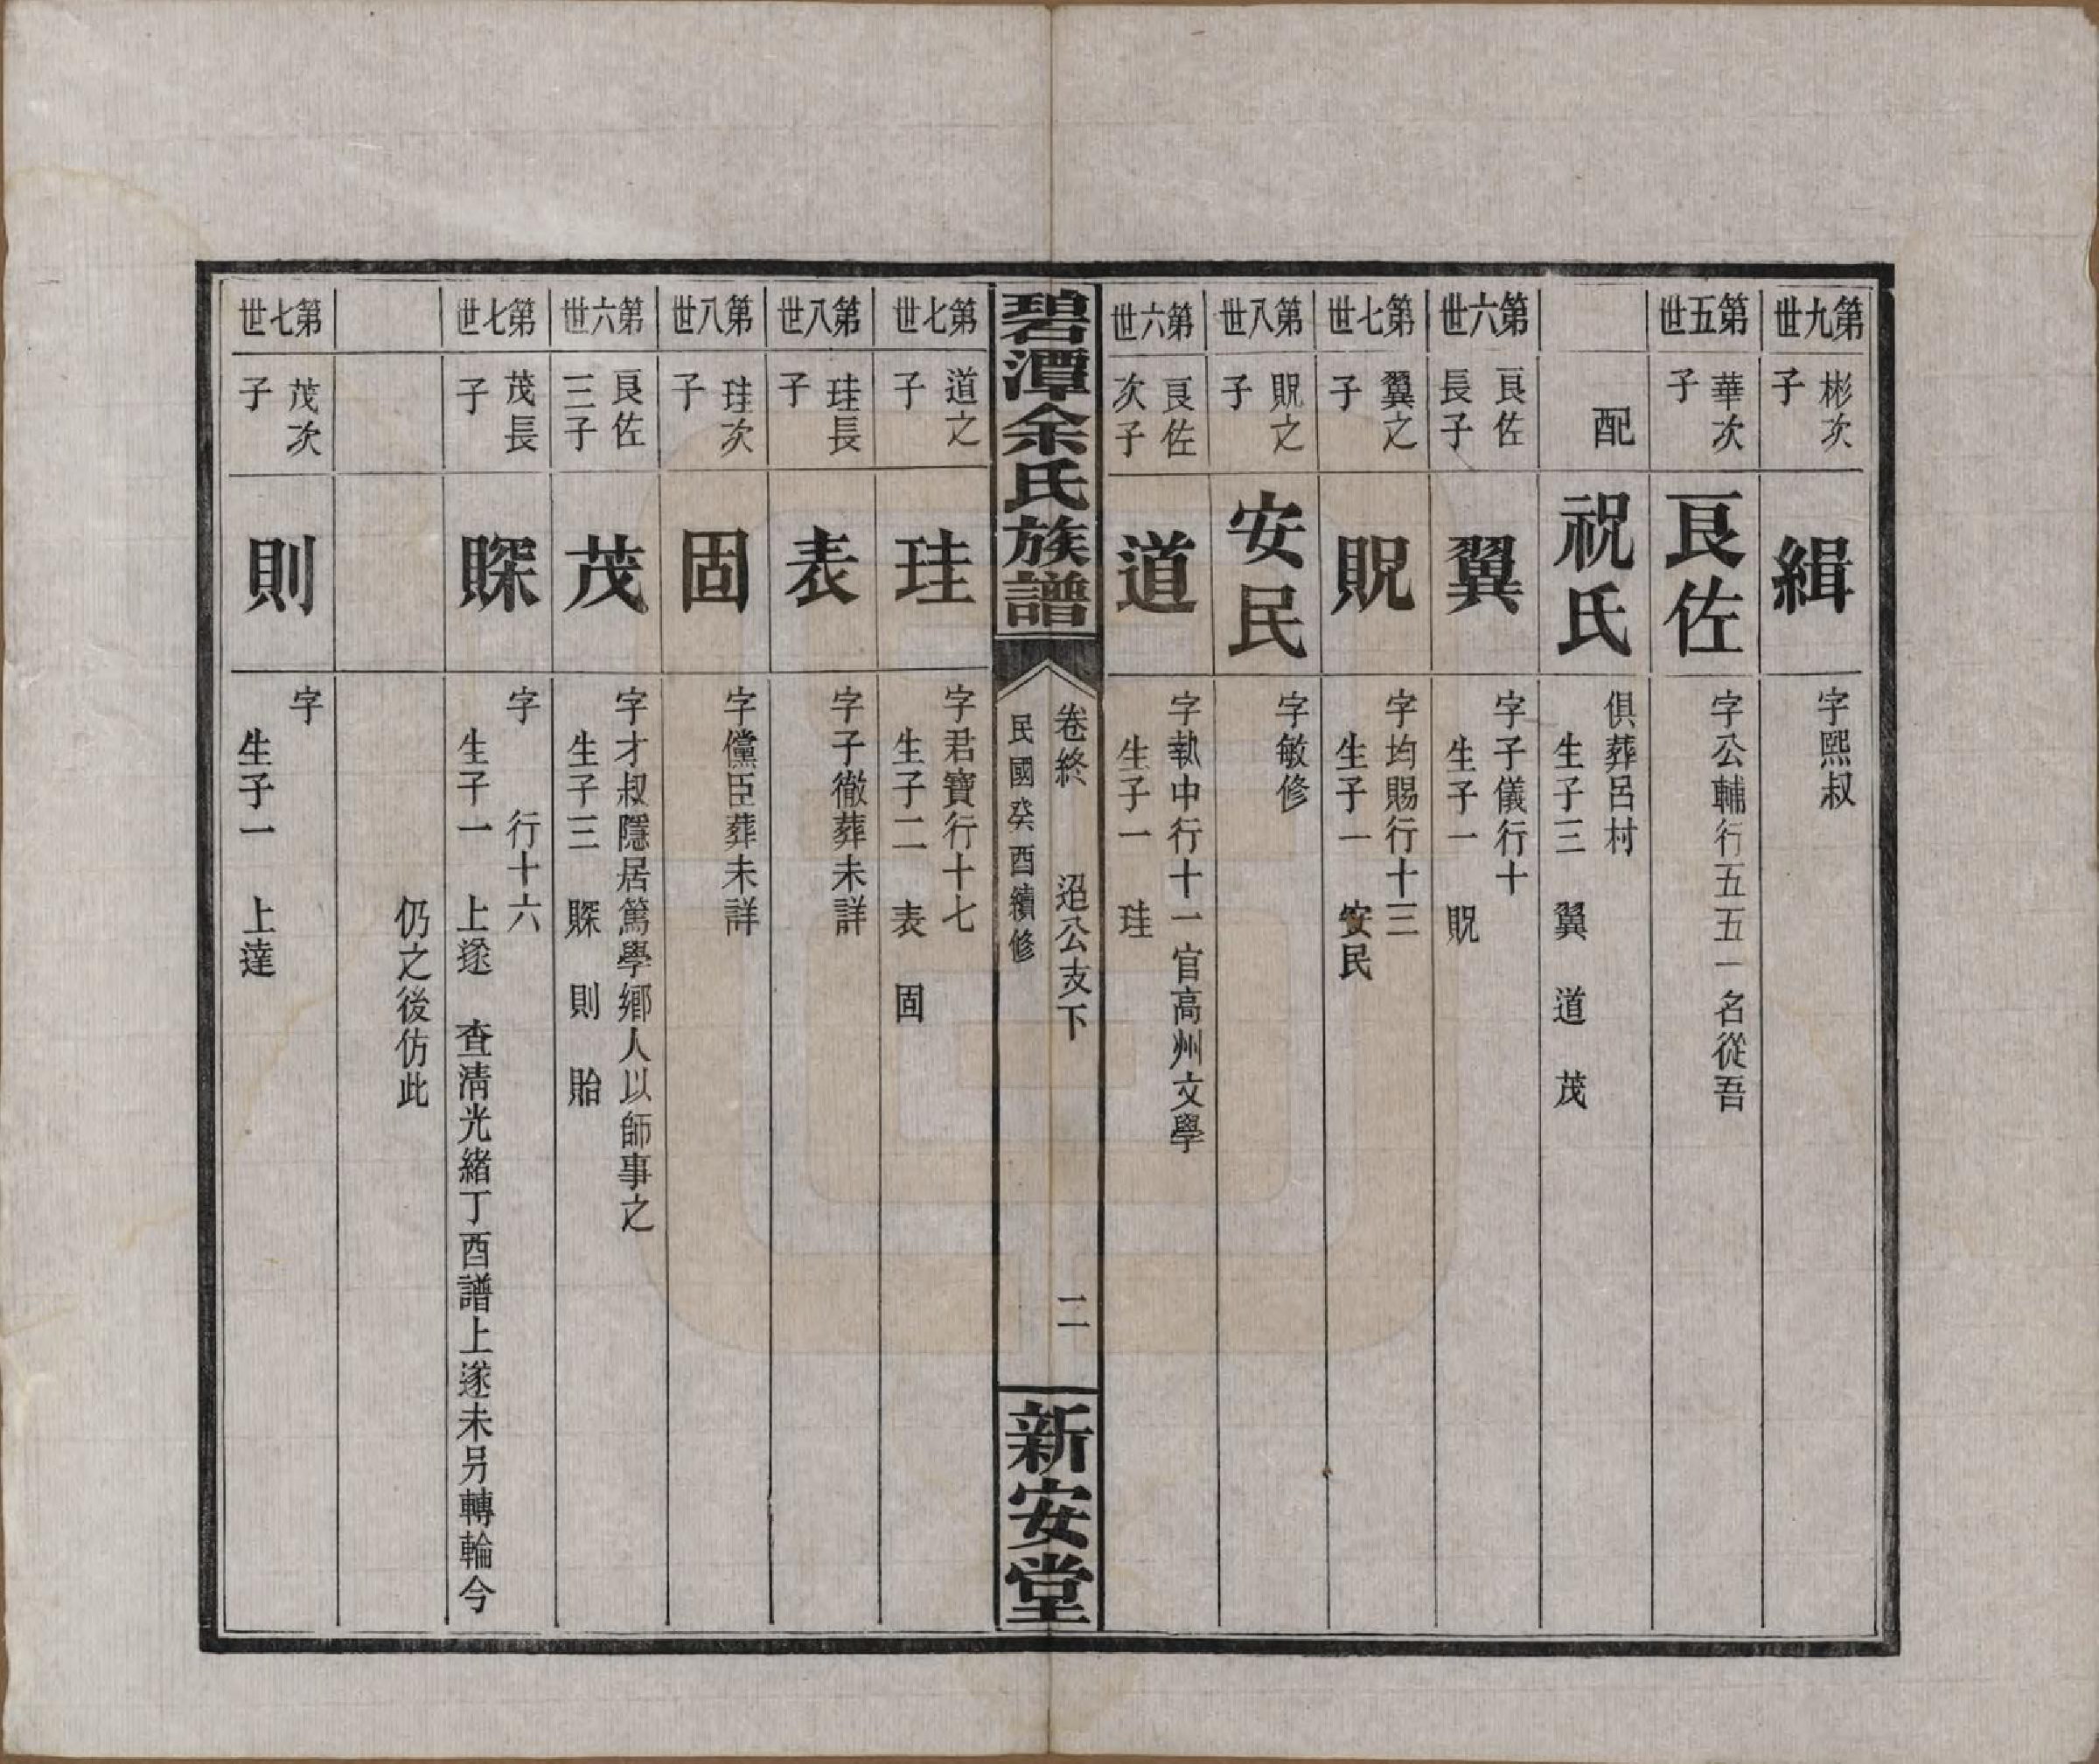 第九世
彬次子
緝
字熙叔
第五世
華次子
良佐
字公輔行五五一名從吾
配
祝氏
俱葬呂村
生子三　翼　道　茂
第六世
良佐長子
翼
字子儀行十
生子一　貺
第七世
翼之子
貺
字均賜行十三
生子一　安民
第八世
貺之子
安民
字敏修
第六世
良佐次子
道
字執中行十一官高州文學
生子一　珪
碧潭余氏族譜
卷終　迢公支下　二
民國癸酉續修
新安堂
第七世
道之子
珪
字君寶行十七
生子二　表　固
第八世
珪長子
表
字子徹葬未詳
第八世
珪次子
固
字儻臣葬未詳
第六世
良佐三子
茂
字才叔隱居篤學鄉人以師事之
生子三　賝　則　貽
第七世
茂長子
賝
字　　行十六
生子一　上遂　查清光緒丁酉譜上遂未另轉輪今
仍之後仿此
第七世
茂次子
則
字
生子一　上達